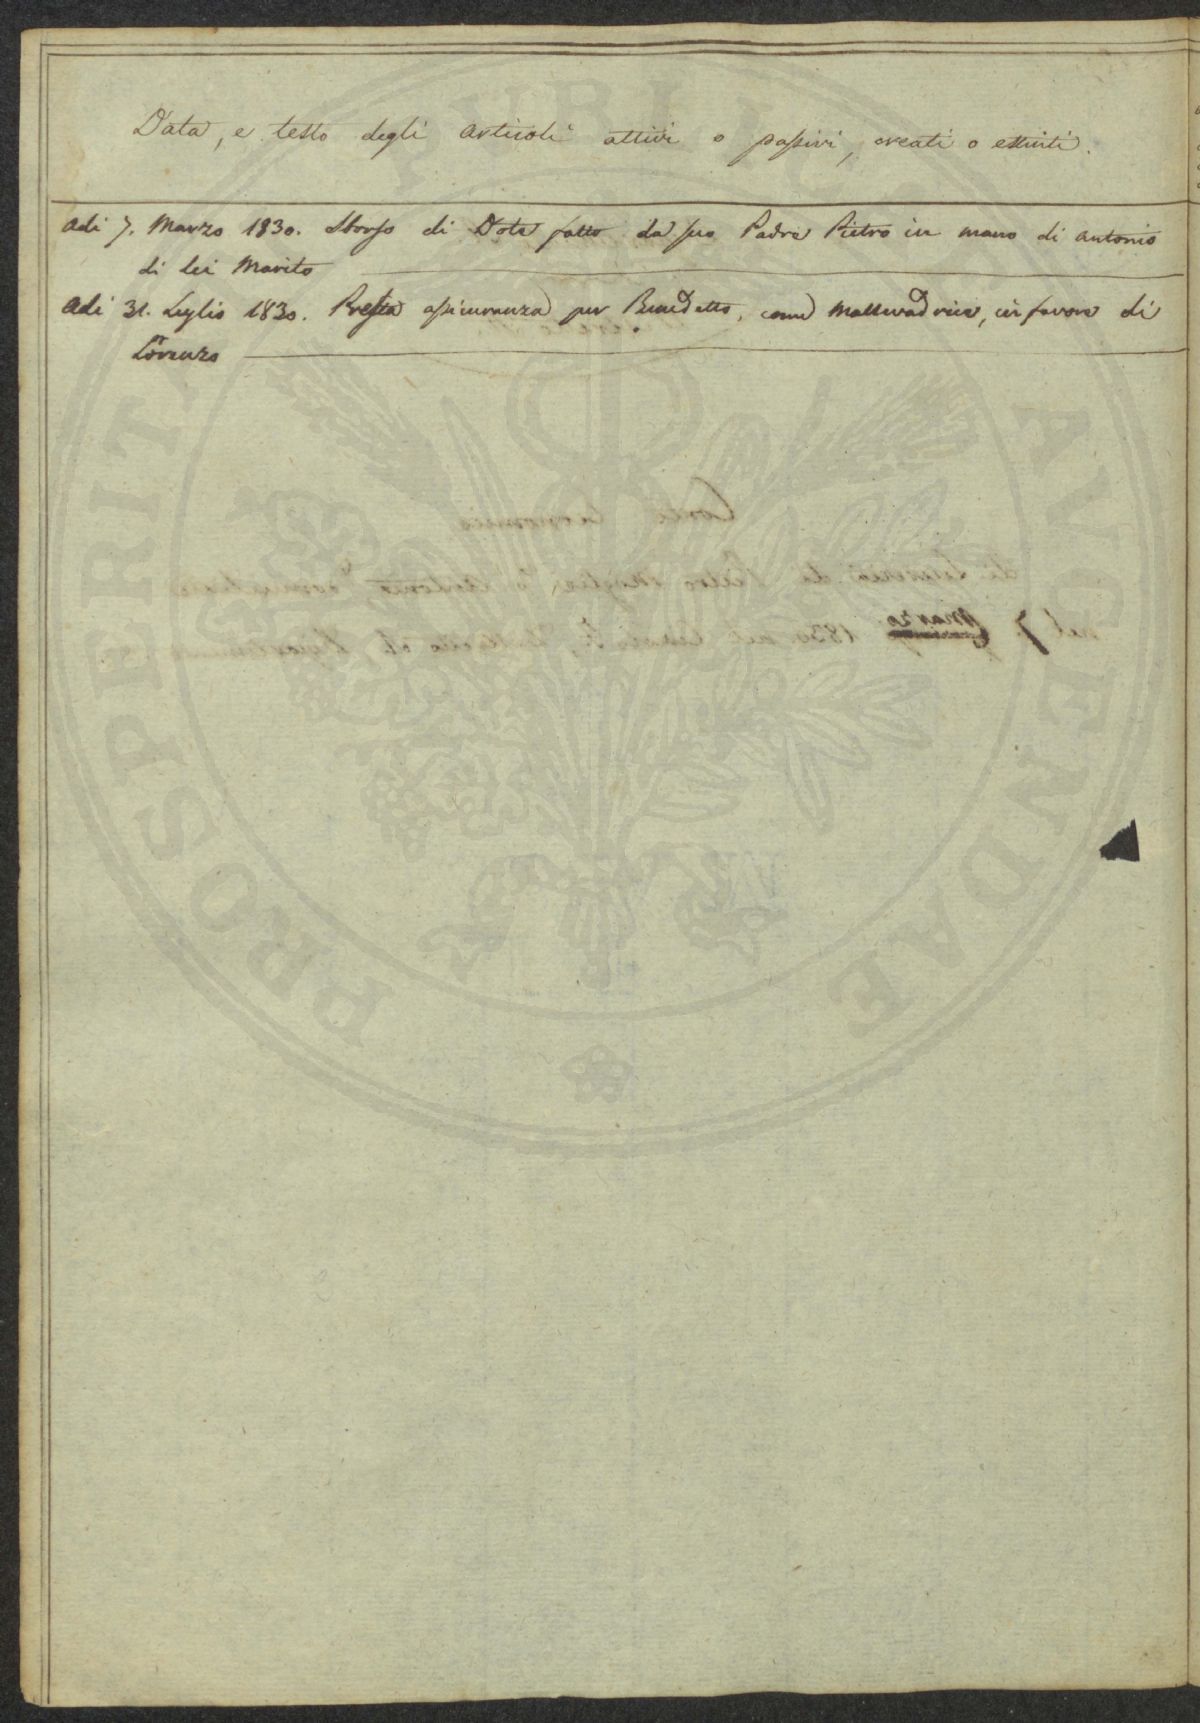 Data, e testo degli articoli attivi o passivi, creati o estinti.
Adi 7. Marzo 1830. Sborso di Dote fatto da suo Padre Pietro in mano di Antonio
di lei Marito
Adi 31. Luglio 1830. Presta assicuranza per Benedetto, come in favore di
Lorenzo
PROSPERIT AVGENDAE